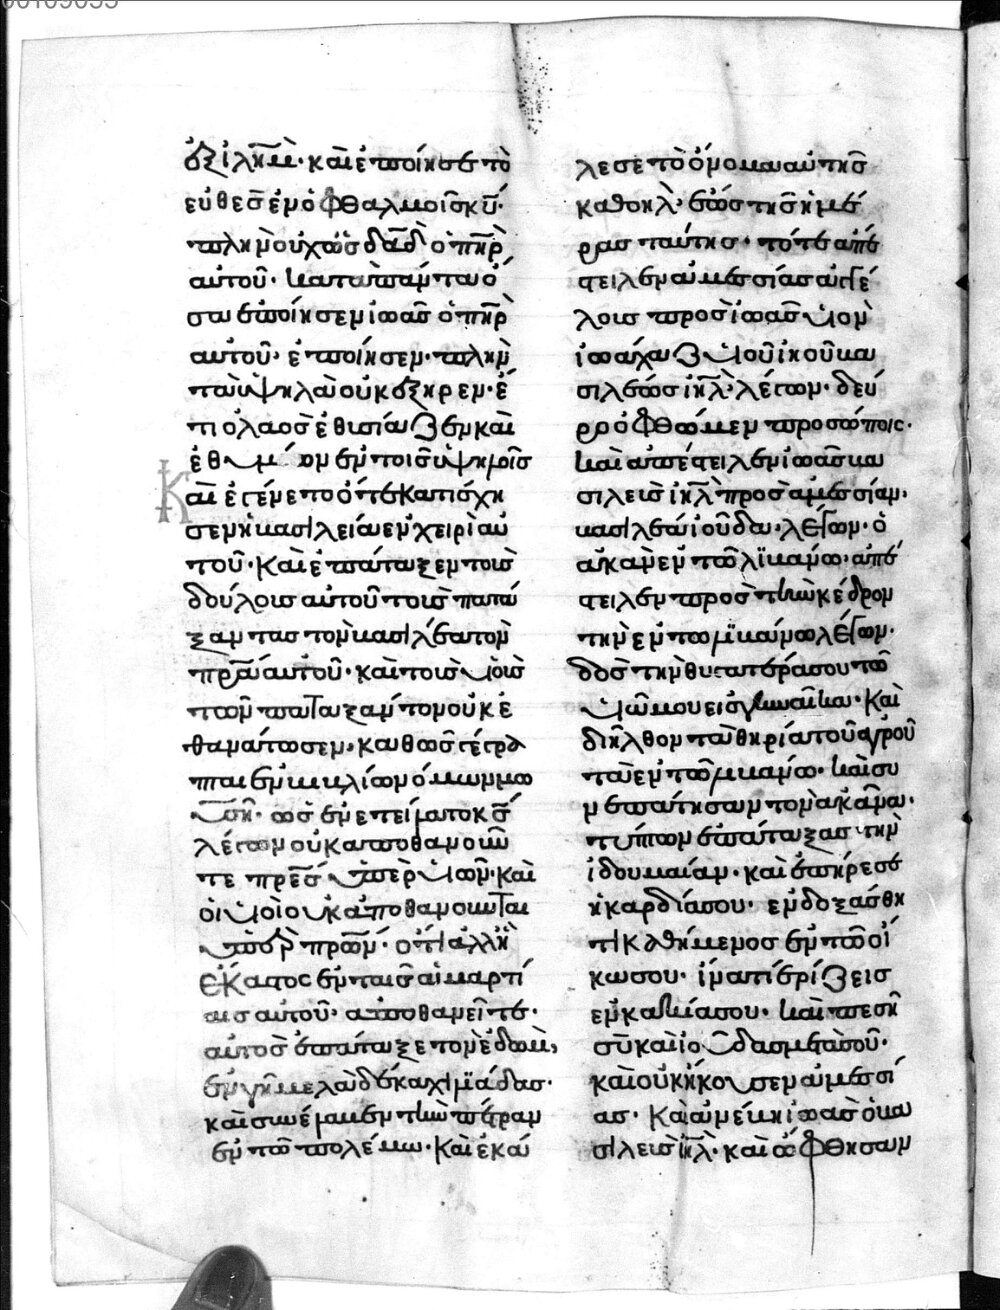 ἐξ ἰλ̅η̅μ̅· καὶ ἐποίησε τὸ
εὐθὲς ἐν ὀφθαλμοῖς κ̅υ̅·
πλὴν οὐχ ὡς δ̅α̅δ̅ ὁ π̅η̅ρ̅
αὐτοῦ· κατὰ πάντα ὅ
σα ἐποίησεν ἰωὰς ὁ π̅η̅ρ̅
αὐτοῦ, ἐποίησεν· πλὴν
τὰ ὑψηλὰ οὐκ ἐξῆρεν· ἔ
τι ὁ λαὸς ἐθυσίαζεν καὶ
ἐθυμίων ἐν τοῖς ὑψηλοῖς
Καὶ ἐγένετο ὅτε κατίσχυ
σεν ἡ βασιλεία ἐν χειρὶ αὐ
τοῦ· καὶ ἐπάταξεν τοὺς
δούλους αὐτοῦ τοὺς πατά
ξαντας τὸν βασιλέα τὸν
π̅ρ̅α̅ αὐτοῦ· καὶ τοὺς υἱοὺς
τῶν παταξάντον οὐκ ἐ
θανάτωσεν, καθὼς γέγρα
πται ἐν βιβλίω νόμων μω
σῆ· ὡς ἐνετείλατο κ̅ς̅
λέγων οὐκ ἀποθανοῦν
ται π̅ρ̅ε̅ς̅ ὑπὲρ υἱῶν· καὶ
οἱ υἱοὶ οὐκ ἀποθανοῦνται
ὑπὲρ π̅ρ̅ω̅ν̅· ὅτι ἀλλ᾽ ἢ
ἕκαστος ἐν ταῖς ἁμαρτί
αις αὐτοῦ· ἀποθανεῖτε·
αὐτὸς ἐπάταξε τὸν ἐδὼμ,
ἐν γημελὰ δέκα χιλιάδας·
καὶ συνέλαβεν τὴν πέτραν
ἐν τῶ πολέμω· καὶ ἐκά
λεσε τὸ ὄνομα αὐτῆς
καθοηλ· ἕως τῆς ἡμέ
ρας ταύτης· τότε ἀπέ
στειλεν ἀμεσσίας ἀγγέ
λους πρὸς ἰωὰς υἱὸν
ἰωάχαζ υἱοῦ ἰηοῦ βα
σιλέως ι̅η̅λ̅· λέγων· δεύ
ρο ὀφθῶμεν προσώποις·
καὶ ἀπέστειλεν ἰωὰς βα
σιλεὺς ι̅η̅λ̅ πρὸς ἀμεσσίαν,
βασιλέα ἰούδα· λέγων· ὁ
ἀκὰν ἐν τῶ λιβάνω· ἀπέ
στειλεν πρὸς τὴν κέδρον
τὴν ἐν τῶ λιβάνω λέγων·
δὸς τὴν θυγατέρα σου τῶ
υἱῶ μου εἰς γυναῖκα· καὶ
διῆλθον τὰ θηρία τοῦ ἀγροῦ
τὰ ἐν τῶ λιβάνω· καὶ συ
νεπάτησαν τὸν ἄκανα·
τύπτων ἐπάταξας τὴν
ἰδουμαίαν· καὶ ἐπῆρέσε
ἡ καρδία σου· ἐνδοξάσθη
τι καθήμενος ἐν τῶ οἴ
κω σου· ἱνατί ἐρίζεις
ἐν κακία σου· καὶ πεσῆ
σὺ καὶ ἰούδας μετὰ σοῦ·
καὶ οὐκ ἤκουσεν ἀμεσσί
ας· Καὶ ἀνέβη ἰωὰς ὁ βα
σιλεὺς ι̅η̅λ̅· καὶ ὤφθησαν